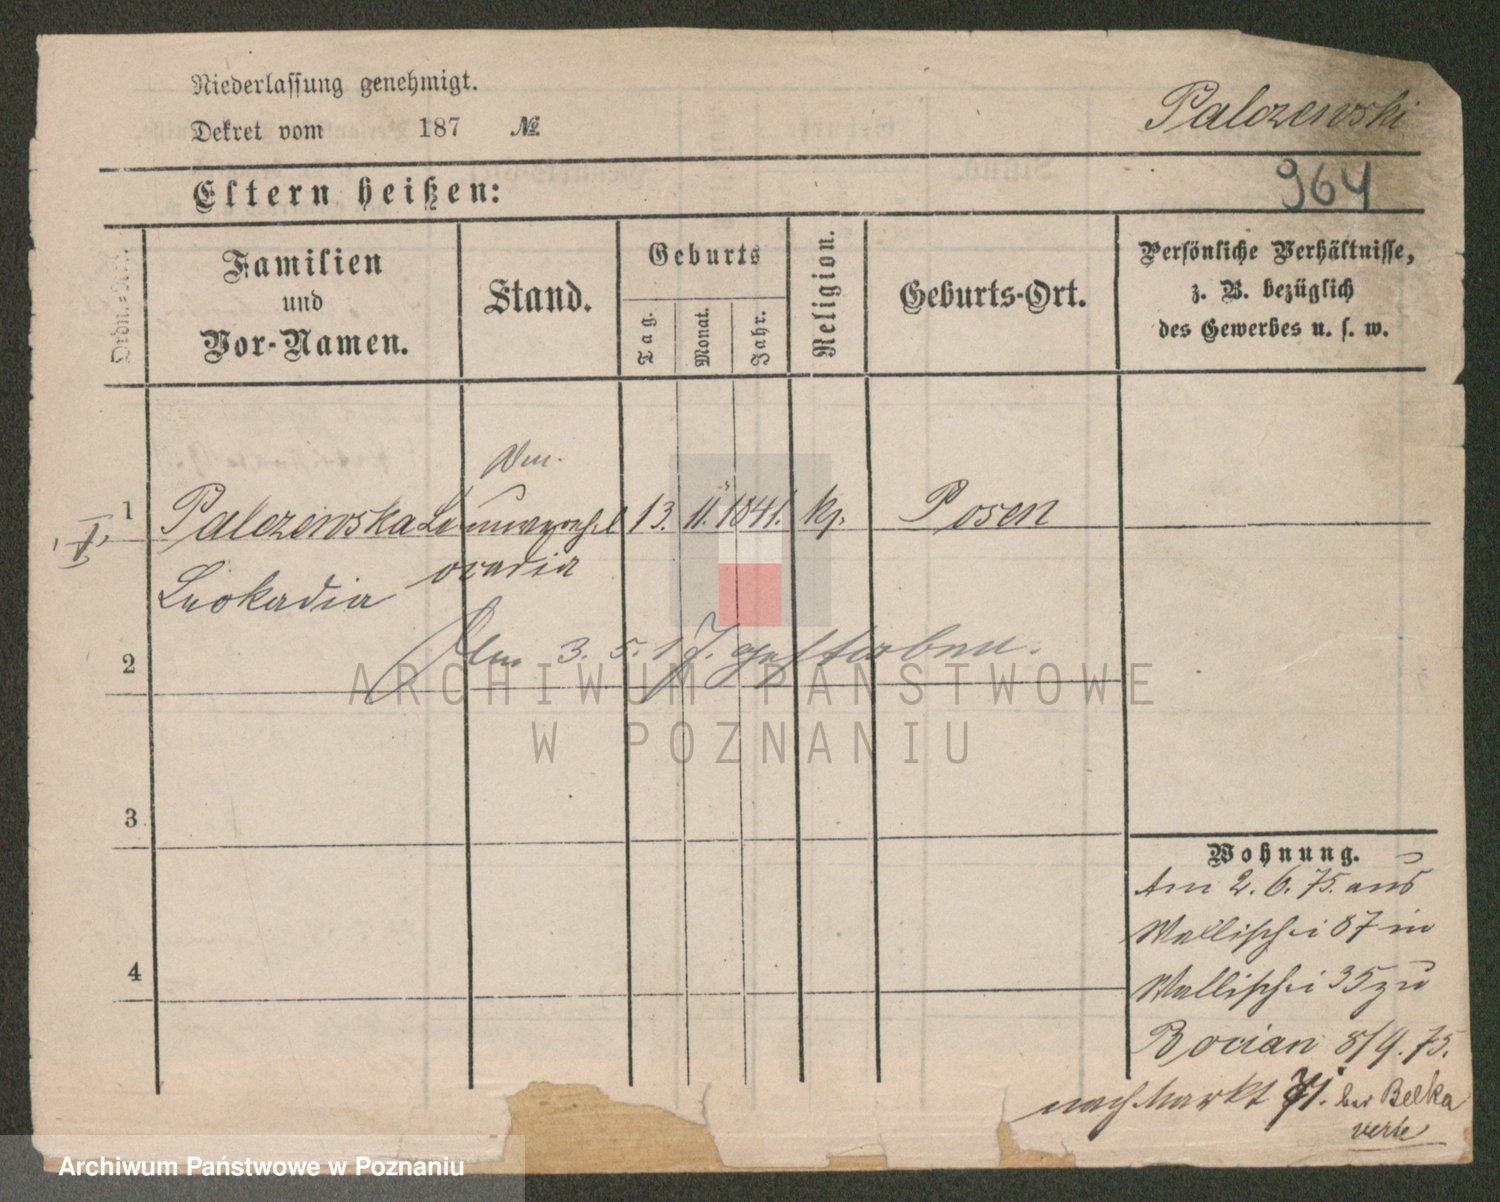 Niederlassung genehmigt.
Dekret vom 187 №
Palczewski
964
Eltern heißen:
Ordn.-Nr.
Familien
und
Vor-Namen.
Stand.
Geburts
Tag.
Monat.
Jahr.
Religion.
Geburts-Ort.
Persönliche Verhältnisse,
z. B. bezüglich
des Gewerbes u. s. w.
1 Palczewska 13. 11. 1841. Posen
I
Leokadia
2
3. 5. gestorben.
ARCHIWUM PAŃSTWOWE
W POZNANIU
3
4
Wohnung.
Am 2. 6. 75. aus
Wallischei 87 in
Wallischei 35 zu
Bocian 8/9. 75.
nach Markt 71. bei Belka
Archiwum Państwowe w Poznaniu